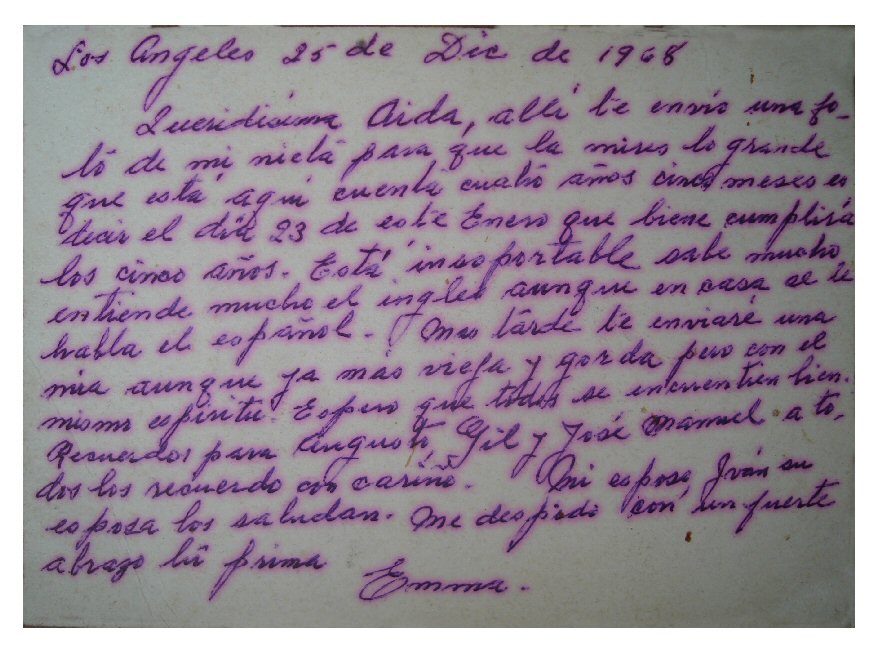 Los Angeles 25 de Dic de 1968
Queridisima Aida, allí te envío una fo-
tó de mi nieta para que la mires lo grande
que está aquí cuenta cuatro años cinco meses es
decir el día 23 de este Enero que biene cumplirá
los cinco años. Está insoportable sabe mucho
entiende mucho el ingles aunque en casa se le
habla el español. Mas tarde te enviaré una
mia aunque ya mas vieja y gorda pero con el
mismo espíritu. Espero que todos se encuentren bien.
Recuerdos para Augusto, Gil y José Manuel a to-
dos los recuerdo con cariño. Mi esposo, Iván su
esposa los saludan. Me despido con un fuerte
abrazo tu prima
Emma.